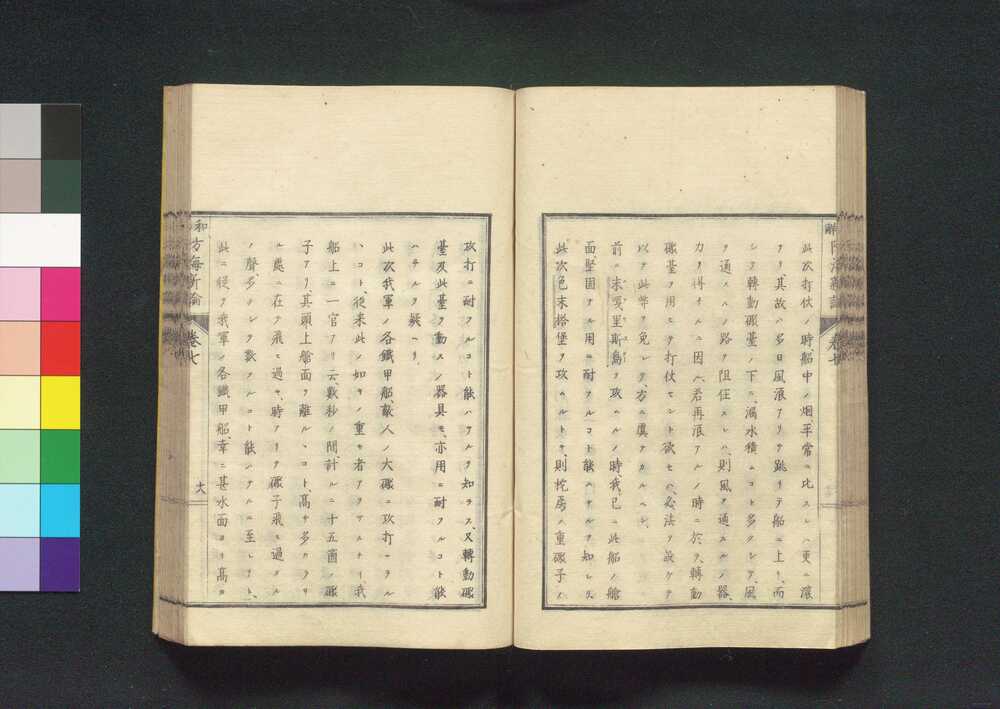 此次打仗ノ時船中ノ烟平常ニ比スレハ更ニ濃
ナリ、其故ハ多日風浪アリテ跳リテ船ニ上リ、而
シテ轉動礟臺ノ下ニ、漏水積ムコト多クシテ、風
ヲ通スルノ路ヲ阻住スレハ、則風ヲ通スルノ器、
力ヲ得サルニ因ル、若再浪アルノ時ニ於テ、轉動
礟臺ヲ用ヒテ打仗セント欲セハ、必法ヲ設ケテ
以テ此弊ヲ免レテ、方ニ虞ナカルヘシ、
前ニ末戛里斯島ヲ攻ムルノ時、我、已ニ此船ノ艙
面、堅固ナル用ニ耐フルコト能ハサルヲ知レリ、
此次色末搭堡ヲ攻ムルトキ、則柁房ノ重礟子ノ
攻打ニ耐フルコト能ハサルヲ知ラス、又轉動礟
臺及此臺ヲ動スノ器具モ、亦用ニ耐フルコト能
ハサルヲ疑ヘリ、
此次我軍ノ各鐵甲船、敵人ノ大礟ニ攻打セラル
ヽコト、從来此ノ如キノ重キ者アラサルナリ、我
船上ニ一官アリ云、數秒ノ間、計ルニ十五箇ノ礟
子アリ、其頭上艙面ヲ離ルヽコト、高サ多カラサ
ル處ニ在テ飛ヒ過キ、時アリテ礟子飛ヒ過クル
ノ聲、多クシテ數フルコト能ハサルニ至レリト、
此ニ從テ我軍ノ各鐵甲船、幸ニ甚水面ヨリ高カ
卷七
卷七